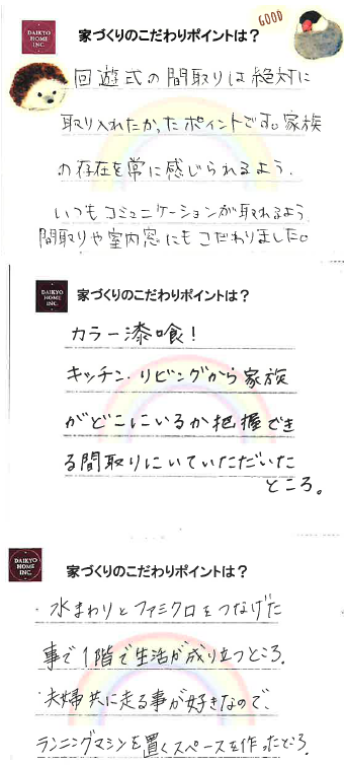 GOOD
DAIKYO
HOME
INC.
家づくりのこだわりポイントは？
回遊式の間取りは絶対に
取り入れたかったポイントです。家族
の存在を常に感じられるよう、
いつもコミュニケーションが取れるよう
間取りや室内窓にもこだわりました。
DAIKYO
HOME
INC.
家づくりのこだわりポイントは？
カラー漆喰！
キッチン・リビングから家族
がどこにいるか把握でき
る間取りにいていただいた
ところ。
DAIKYO
HOME
INC.
家づくりのこだわりポイントは？
・水まわりとファミクロをつなげた
事で1階で生活が成り立つところ。
・夫婦共に走る事が好きなので、
ランニングマシンを置くスペースを作ったところ。